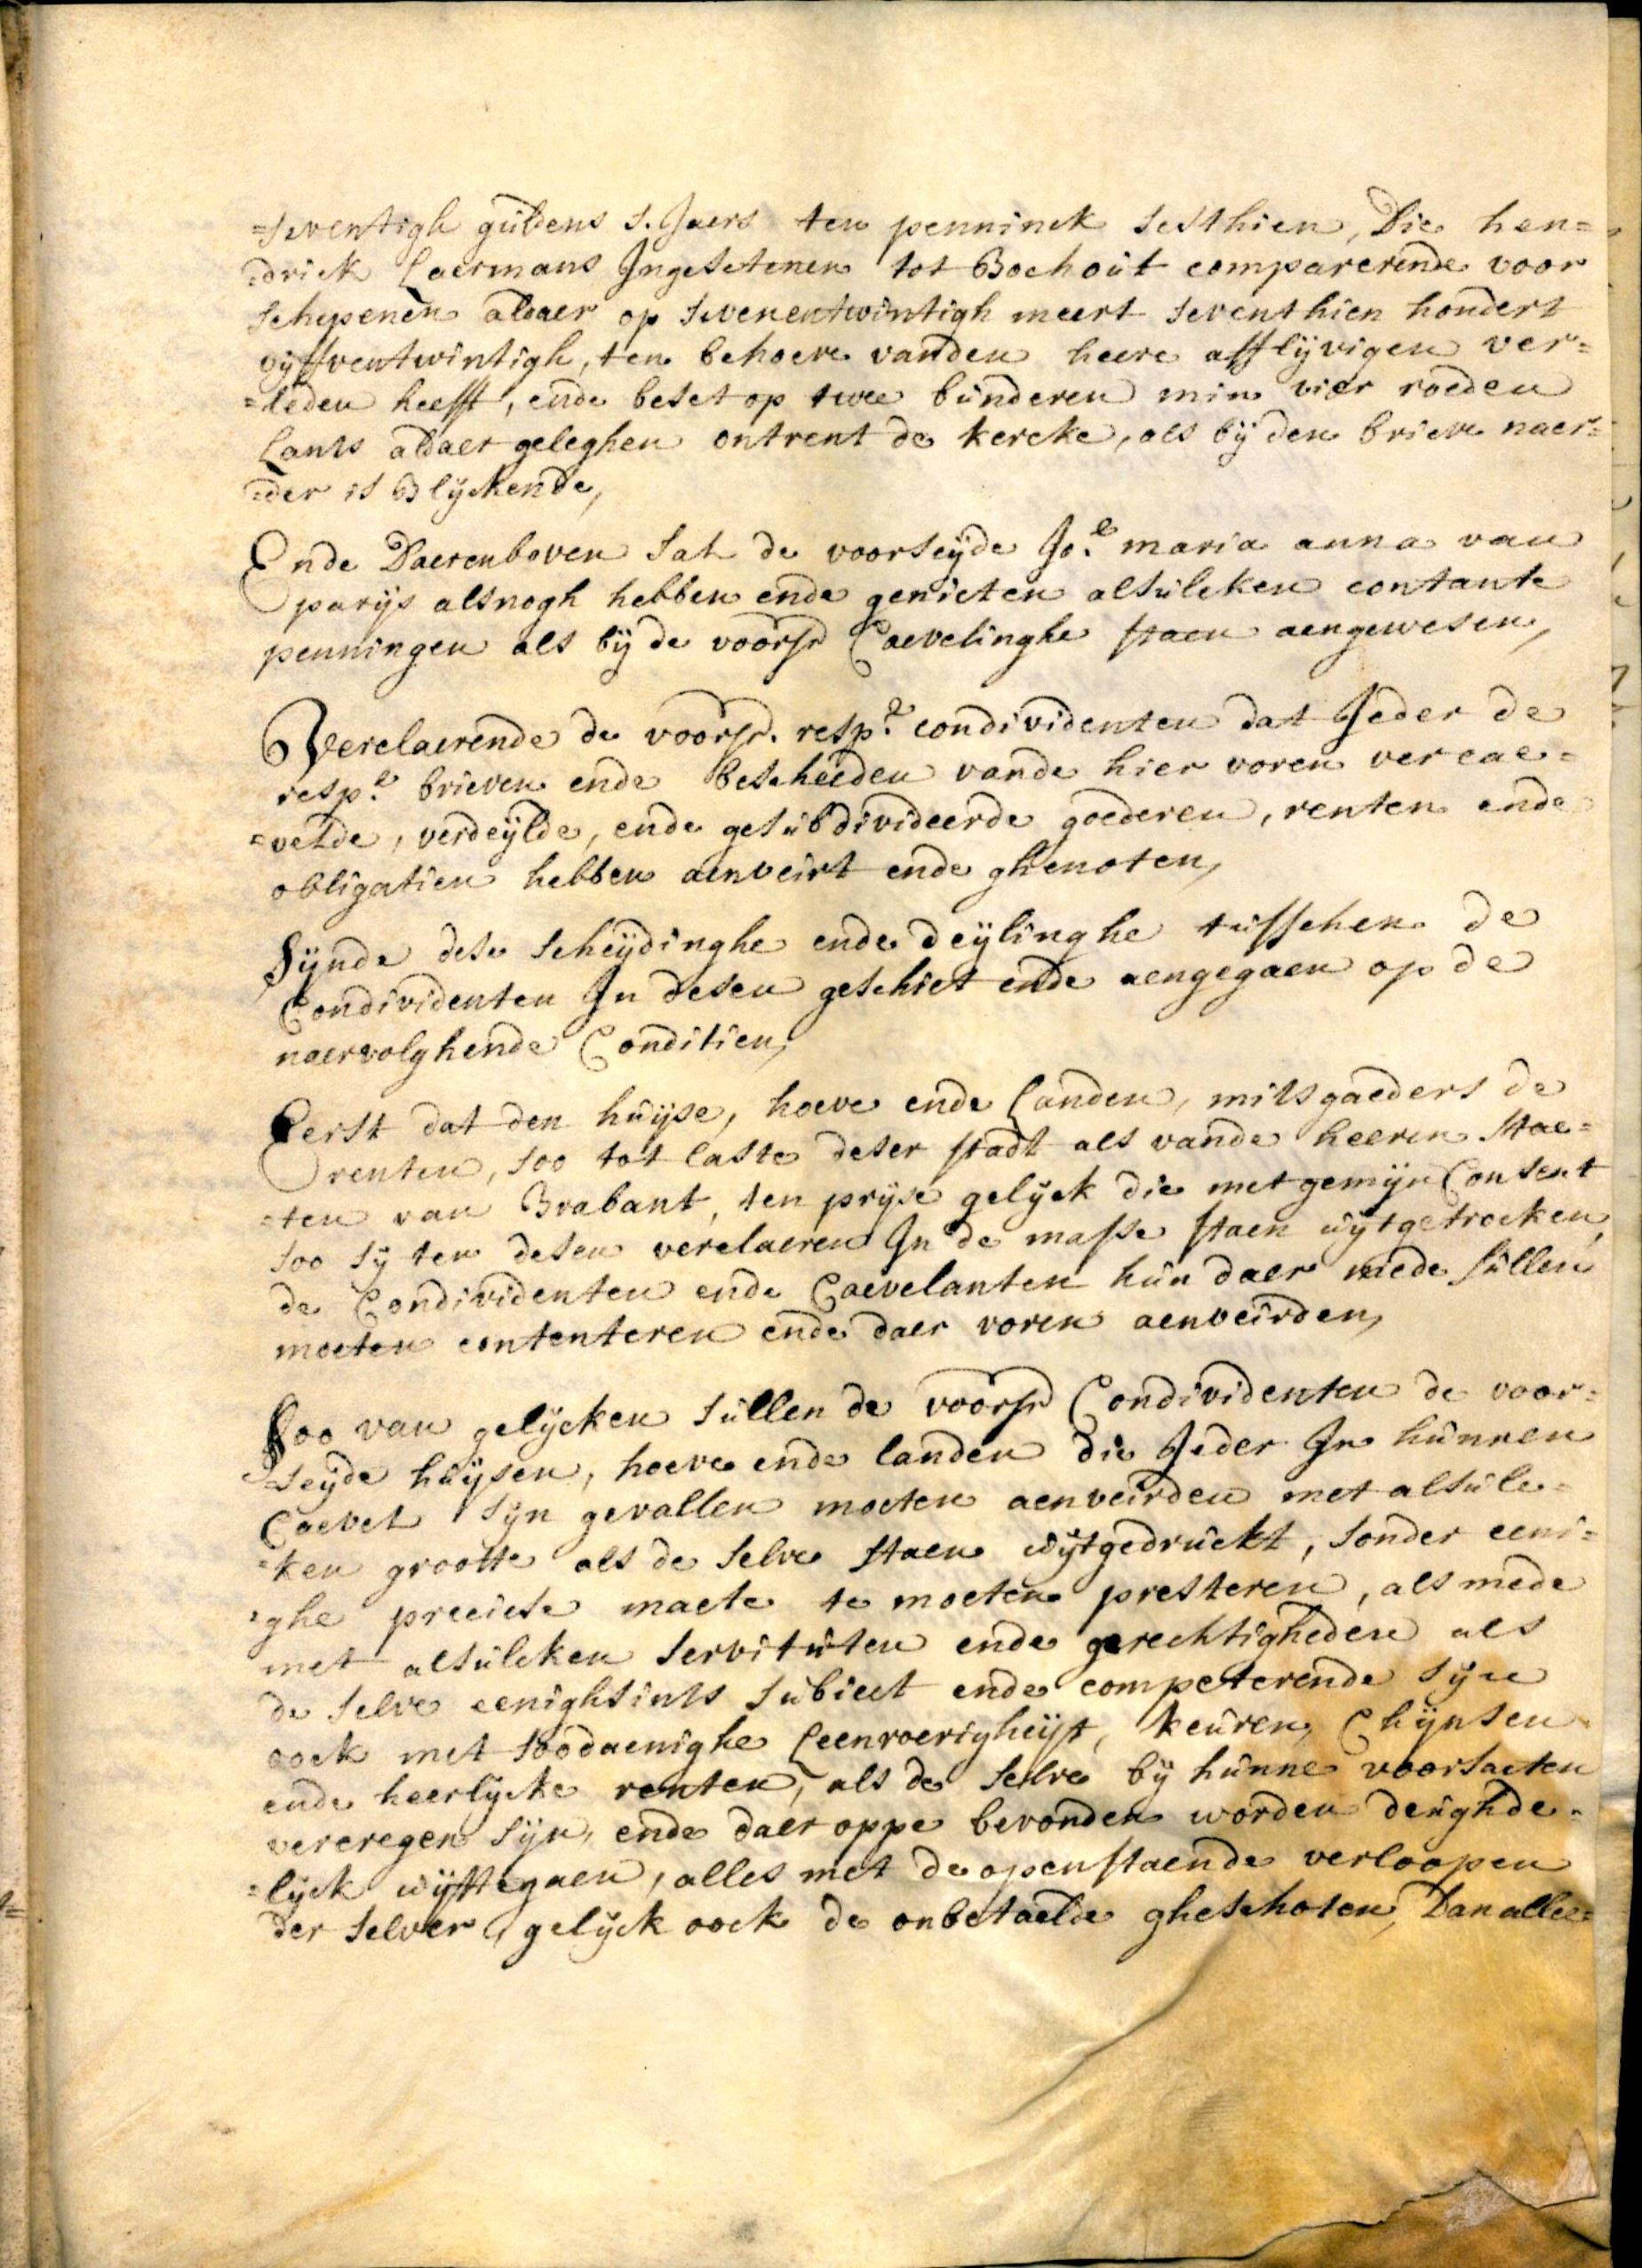 =seventigh guldens s.Jaers ten penninck sesthien, Die hen=
=drick Laermans Ingesetenen tot Bochout comparerende voor
schepenen aldaer op sevenentwintigh meert seventhien hondert
vyffventwintigh, ten behoeve vanden heere afflyvigen ver=
=leden heefft, ende beset op twee bunderen min vier roeden
Lants aldaer geleghen ontrent de kercke, als by den brieve naer=
=der is Blyckende,
Ende Daerenboven sal de voorseyde Jo.e maria anna van
parys alsnogh hebben ende genieten alsulcken contante
penningen als by de voorsr Caevelinghe staen aengewesen,
Verclaerende de voorsr. resp.e condividenten dat Jeder de
resp.e brieven ende bescheeden vande hier voren vercae=
=velde, verdeylde, ende gesubdivideerde goederen, renten ende
obligatien hebben aenveirt ende ghenoten,
Synde dese scheydinghe ende deylinghe tusschen de
Condividenten In desen geschiet ende aengegaen op de
naervolghende Conditien,
Eerst dat den huyse, hoeve ende Landen, mitsgaeders de
renten, soo tot laste deser stadt als vande heeren stae=
=ten van Brabant, ten pryse gelyck die met gemyn Consent
soo sy ten desen verclaeren In de masse staen uytgetrocken,
de Condividenten ende Caevelanten hun daer mede sullen
moeten contenteren ende daer voren aenveirden,
Soo van gelycken sullen de voorsr Condividenten de voor=
seyde huysen, hoeve ende landen die Jeder In hunnen
Caevel syn gevallen moeten aenveirden met alsulc=
=ken grootte als de selve staen uytgedruckt, sonder eeni=
=ghe preciese maete te moeten presteren, als mede
met alsulcken servituten ende gerechtigheden als
de selve eenighsints subiect ende competerende syn
oock met soodaenighe Leenroerigheyt, keuren, Chynsen
ende heerlycke renten, als de selve by hunne voorsaeten
vercregen syn, ende daer oppe bevonden worden deughde=
=lyck uyttegaen, alles met de openstaende verloopen
der selver, gelyck oock de onbetaelde gheschoten, Dan allee=